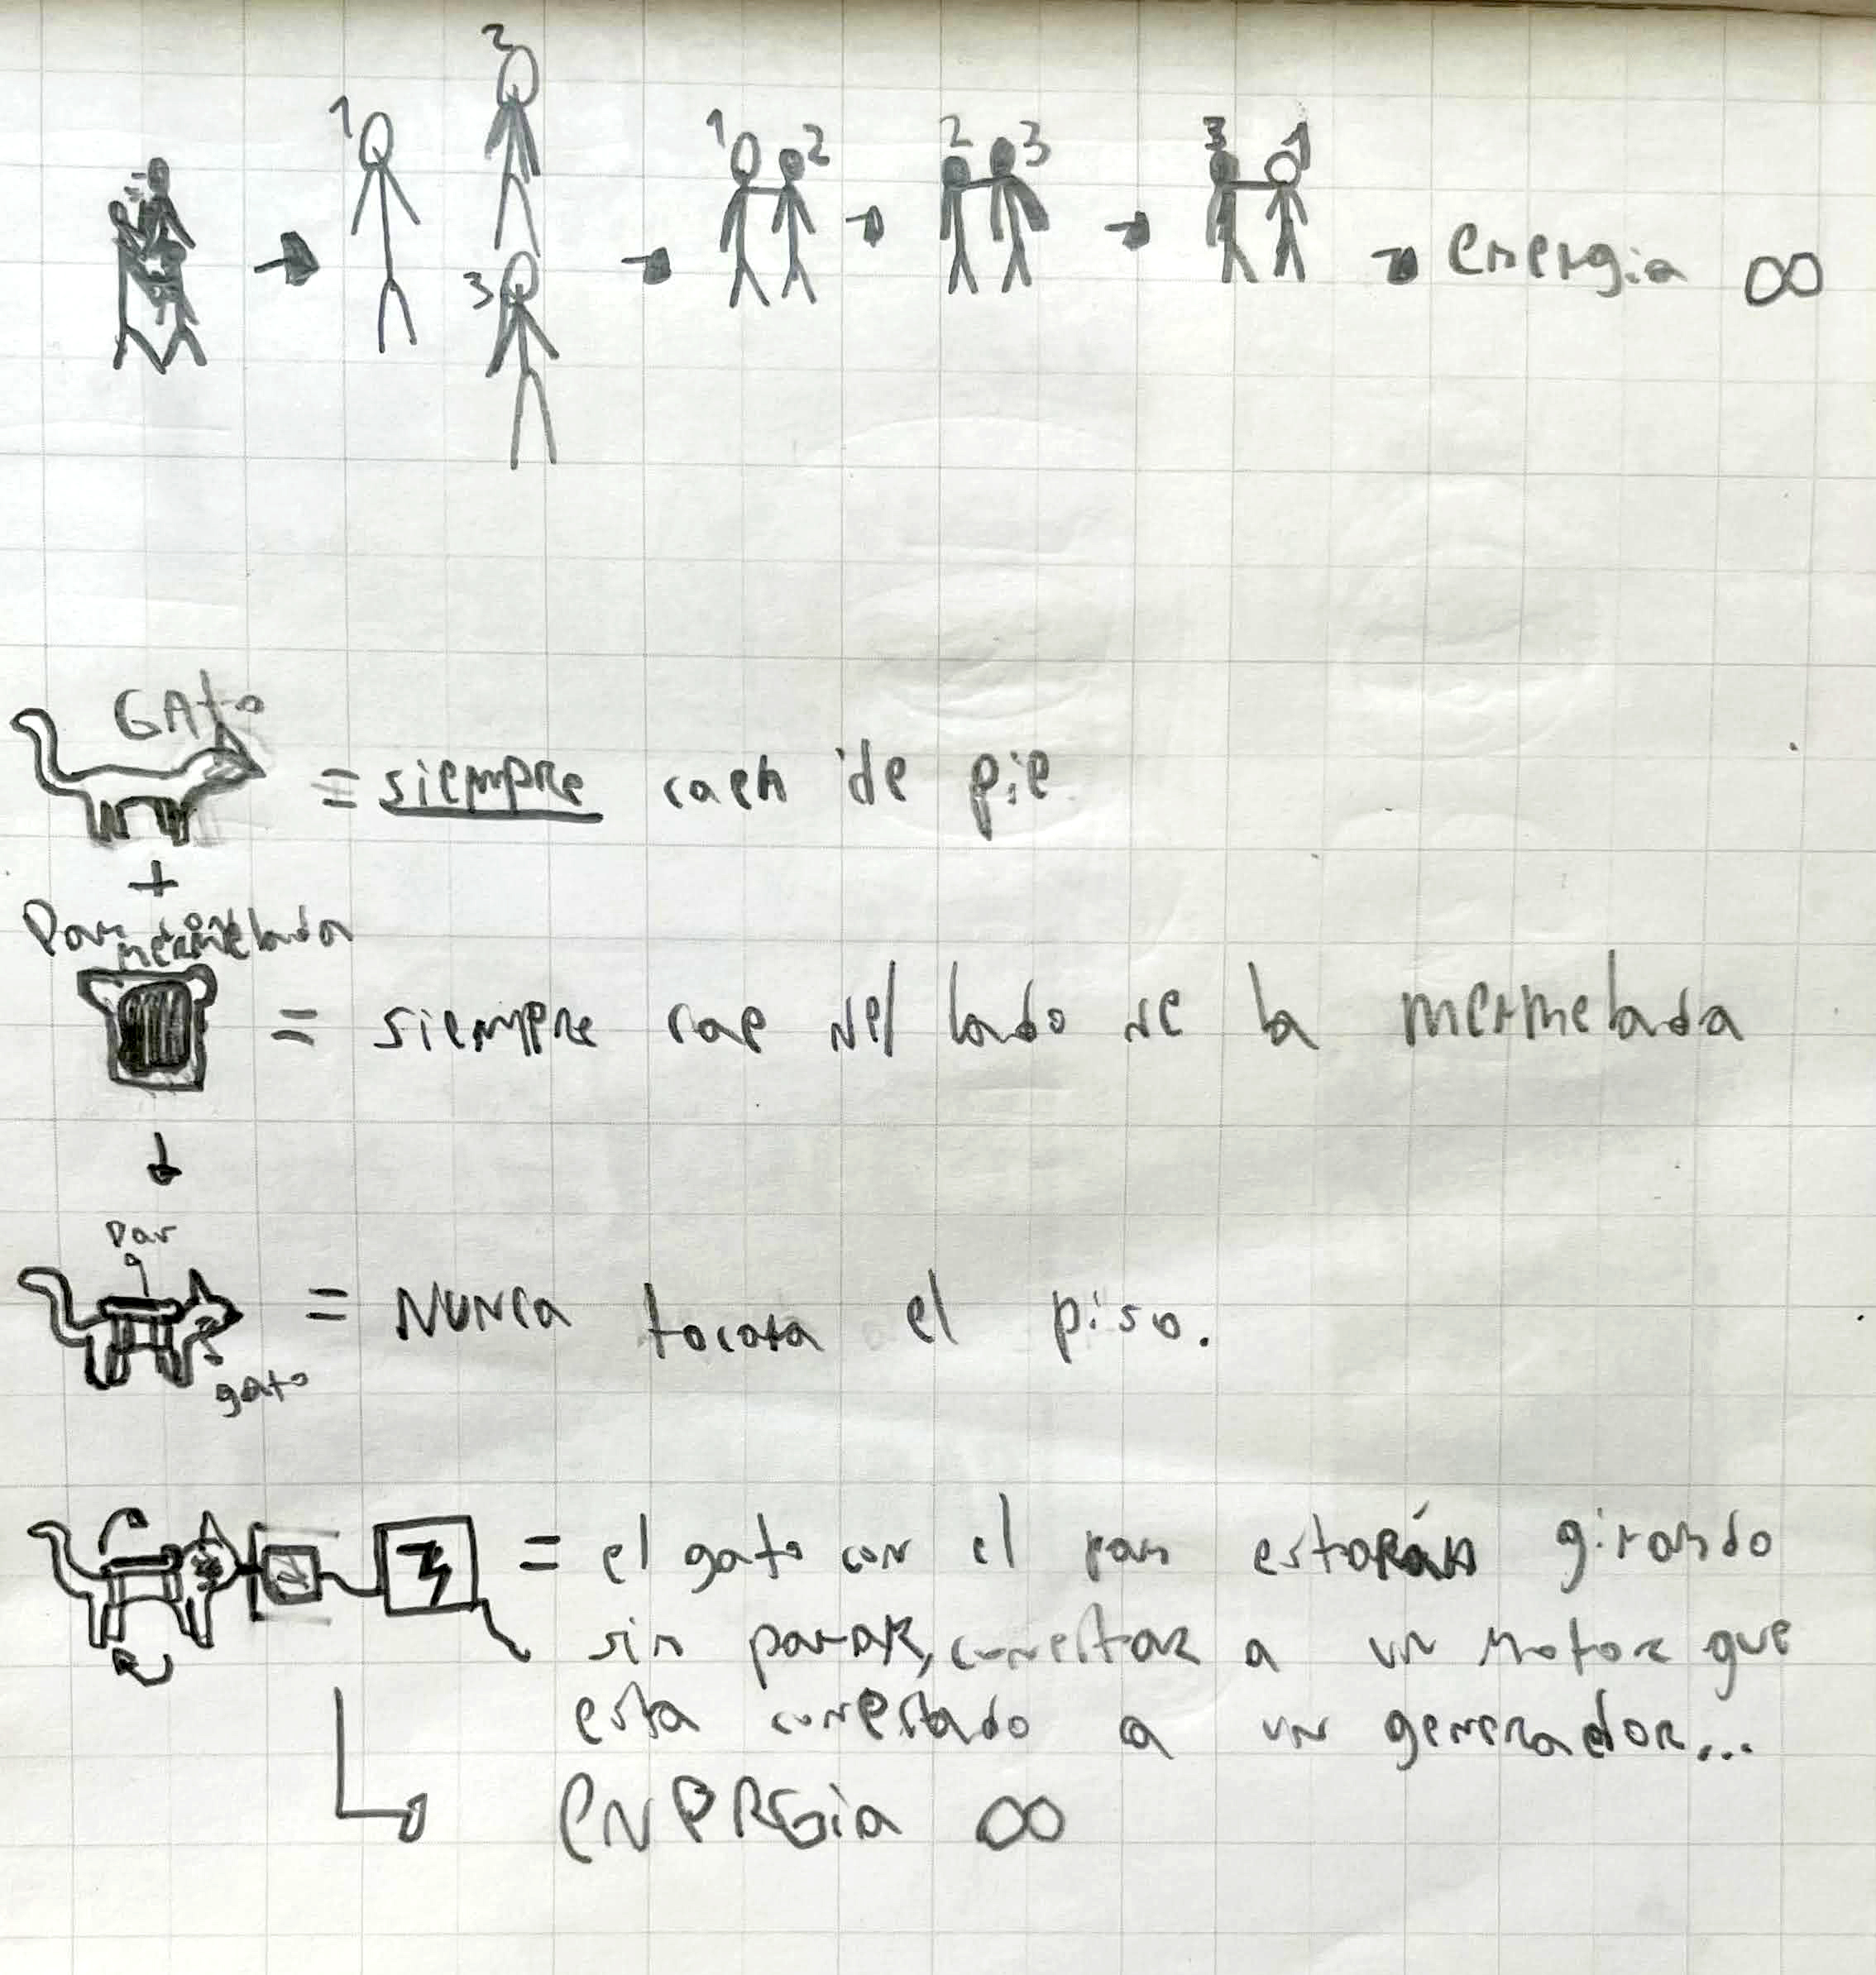 2
1
3
1 2
2 3
3 1
energia ∞
GAto
= siempre caen de pie
+
Pan con mermelada
= siempre cae del lado de la mermelada
Pan
gato
= NUNCA tocara el piso.
= el gato con el pan estarán girando
sin parar, conectar a un motor que
esta conectado a un generador...
ENERGia ∞